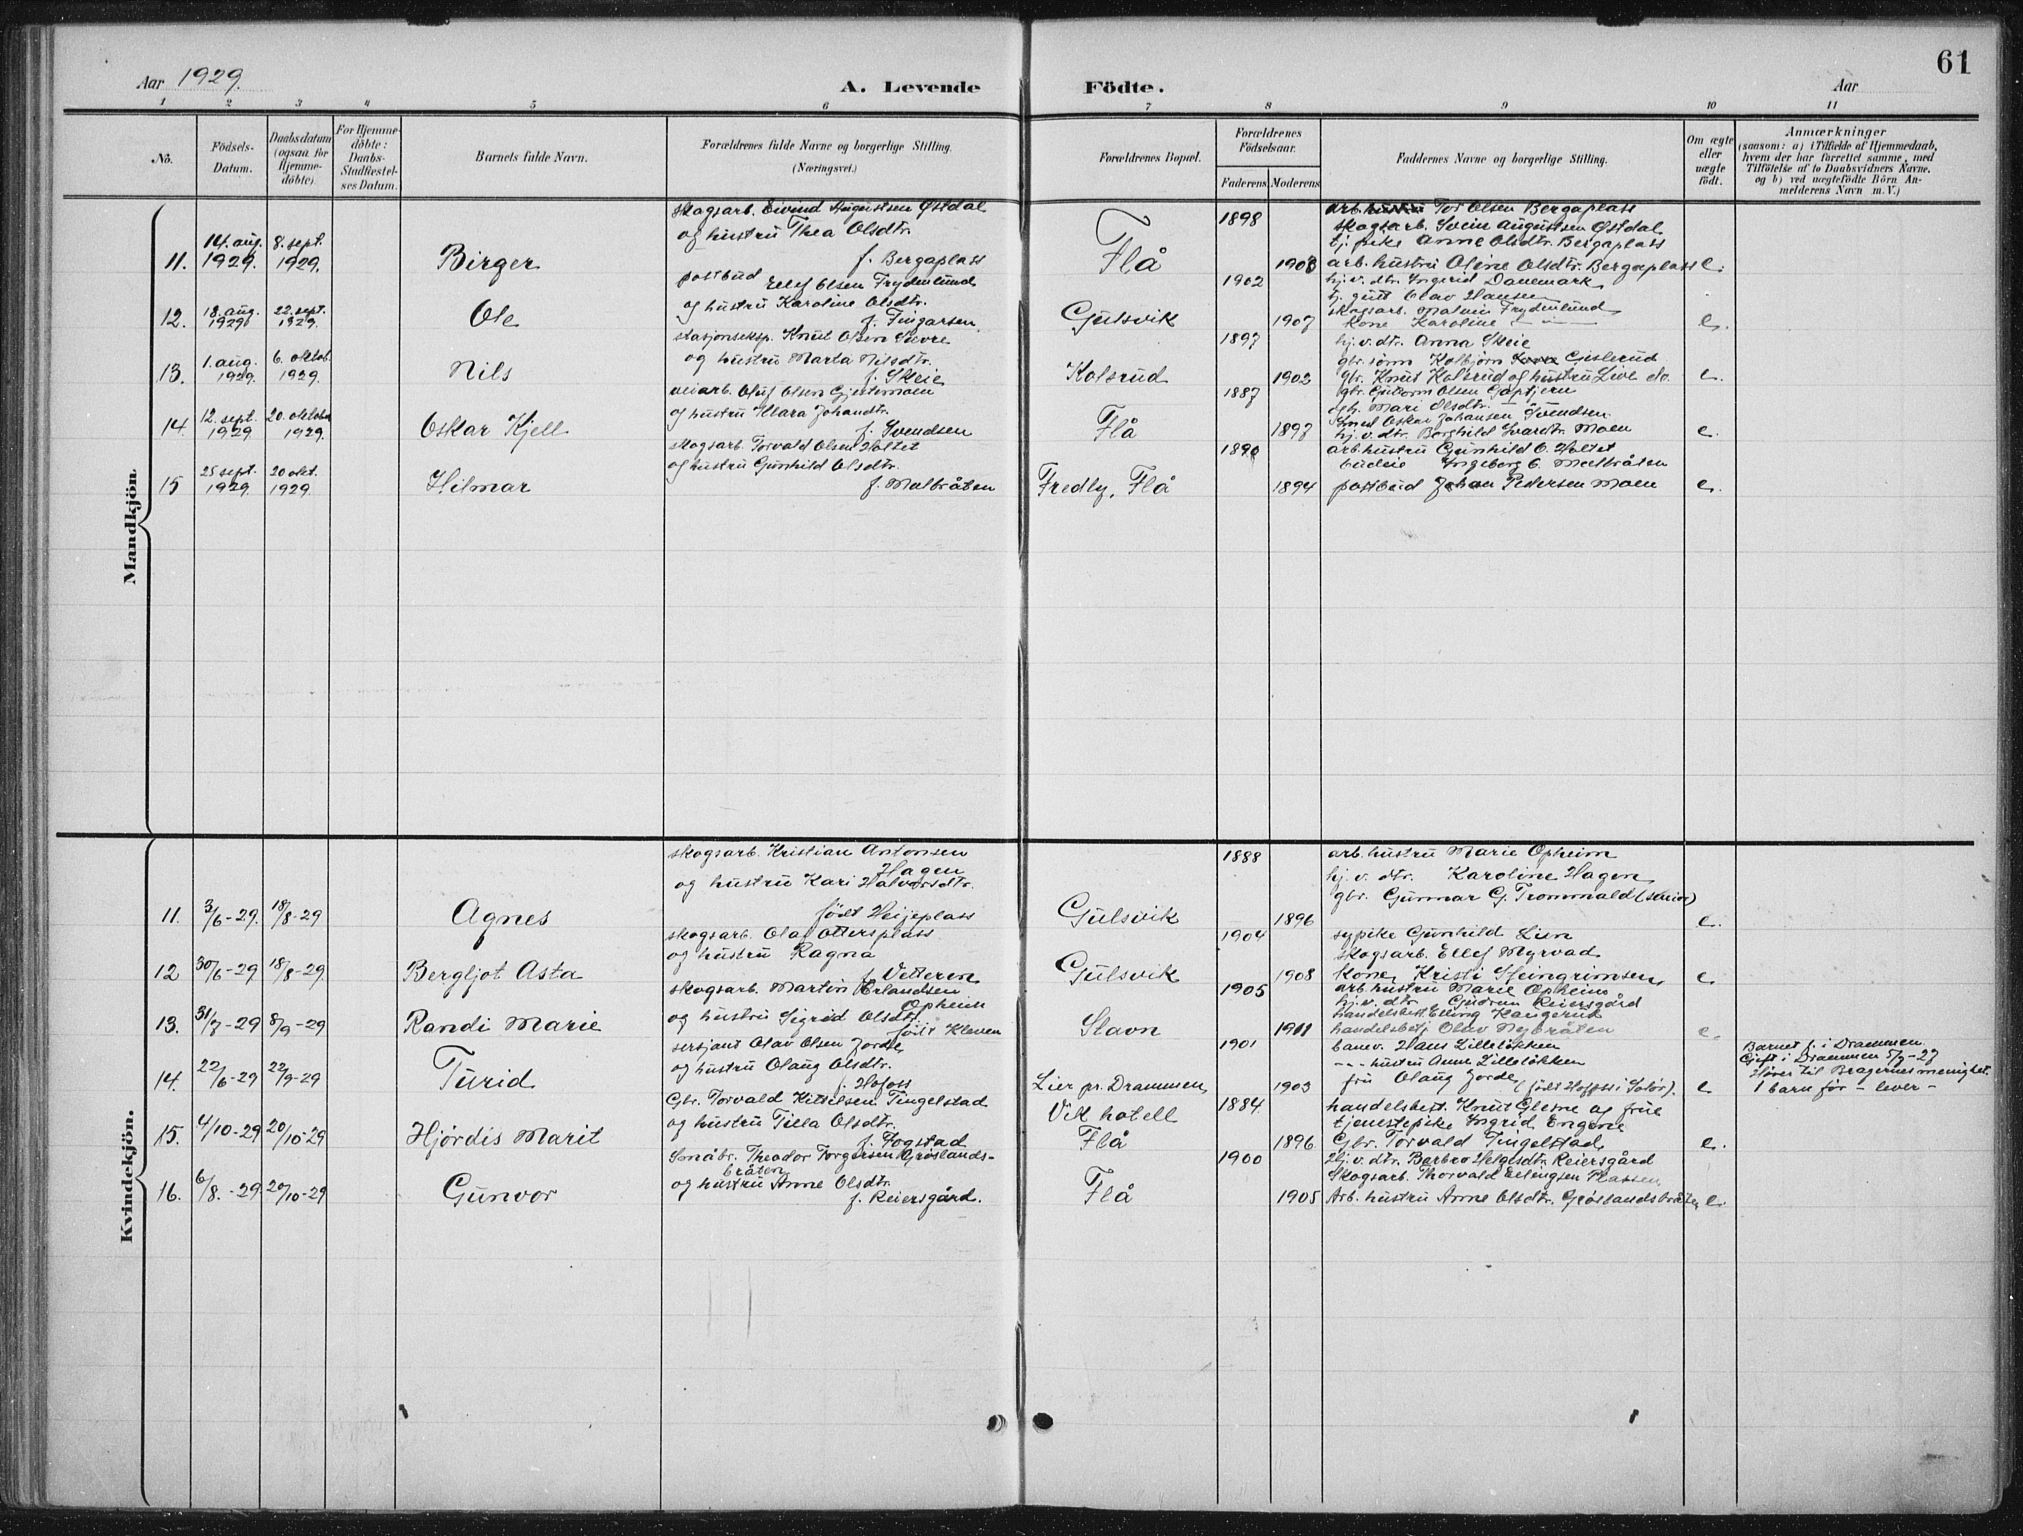 Aar 1929.
A. Levende Födte.
Aar
61
1 2 3 4 5 6 7 8 9 10 11
No.
Födsels-Datum.
Daabsdatum (ogsaa for Hjemme-döbte).
For Hjemme-döbte: Daabs-Stadfæstel-ses Datum.
Barnets fulde Navn.
Forældrenes fulde Navne og borgerlige Stilling. (Næringsvei.)
Forældrenes Bopæl.
Forældrenes Födselsaar.
Faderens Moderens
Faddernes Navne og borgerlige Stilling.
Om ægte eller uægte födt.
Anmærkninger
(saasom: a) i Tilfælde af Hjemmedaab, hvem der har forrettet samme, med Tilföielse af to Daabsvidners Navne, og b) ved uægtefödte Börn An-melderens Navn m. V.)
Mandkjön.
11. 14. aug. 1929. 8. sept. 1929. Birger
skogsarb. Eivind Augustsen Østdal
og hustru Thea Olsdtr.
f. Bergaplass
Flå 1898 1903
arb. Tor Olsen Bergaplass
skogsarb. Svein Augustsen Østdal
tj. pike Anne Olsdtr. Bergaplass
arb. hustru Oline Olsdtr. Bergaplass e.
12. 18. aug. 1929 22. sept. 1929. Ole
postbud Ellef Olsen Frydenlund
og hustru Karoline Olsdtr.
f. Fingarsen
Gulsvik 1902 1907
hj. v. dtr. Ingrid Danemark
tj. gutt Olav Hansen
skogsarb. Martin Frydenlund
kone Karoline — " — e.
13. 1. aug. 1929. 6. oktob. 1929. Nils
stasjonseksp. Knut Olsen Sævre
og hustru Marta Nilsdtr.
f. Skeie
Kolsrud 1897 1902
hj. v. dtr. Anna Skeie
gbr. sønn Kolbjørn Gislerud
gbr. Knut Kolsrud og hustru Live do. e.
14. 12. sept. 1929 20. oktober 1929. Oskar Kjell
veiarb. Oluf Olsen Gjestemoen
og hustru Klara Johandtr.
f. Svendsen
Flå 1887 1897
gbr. Guttorm Olsen Gaptjern
Mari Olsdtr.
Oskar Johansen Svendsen
hj. v. dtr. Borghild Moen e.
15 25 sept. 1929 20 okt. 1929. Hilmar
skogsarb. Torvald Olsen Holtet
og hustru Gunhild Olsdtr.
f. Malbråten
Fredly, Flå 1890 1894
arb. hustru Gunhild O. Holtet
budeie Ingeborg O. Melbråten
postbud Johan Pedersen Moen e.
Kvindekjön.
11. 3/6-29. 18/8-29 Agnes
skogsarb. Kristian Antonsen
Hagen
og hustru Kari Halvorsdtr.
født Heijeplass
Gulsvik 1888 1896
arb. hustru Marie Opheim
hj. v. dtr. Karoline Hagen
gbr. Gunnar G. Trommald (senior) e.
12 30/6-29 18/8-29. Bergljot Asta
skogsarb. Olav Ottersplass
og hustru Ragna
f. Vetteren
Gulsvik 1904 1908
sypike Gunhild Lien
skogsarb. Ellef Myrvad
kone Kristi Steingrimsen e.
13. 31/7-29 8/9-29 Randi Marie
skogsarb. Martin Erlandsen
Opheim
og hustru Sigrid Olsdtr.
født Kleven
Stavn 1905 1911
arb. hustru Marie Opheim
hj. v. dtr. Gudrun Reiersgård
handelsbest. Elling Haugerud
handelsbetj Olav Nybråten e.
14. 22/6-29 22/9-29 Turid
sersjant Olav Olsen Jorde
og hustru Olaug Olsdtr.
f. Hofoss
Lier pr. Drammen, 1901 1903
banev. Hans Lilleløkken
- - - hustru Anne Lilleløkken
fru Olaug Jorde (født Hoffos i Solør). e
Barnet f. i Drammen.
Gift i Drammen 5/9-27
Hører til Bragernes menighet
1 barn før - lever -
15. 4/10-29 20/10-29 Hjørdis Marit
Gbr. Torvald Kittilsen Tingelstad
og hustru Tilla Olsdtr.
f. Fogstad
Vik hotell
Flå 1884 1896
handelsbest. Knut Glesne og frue
tjenestepike Ingrid Engene
Gbr. Torvald Tingelstad e.
16. 6/8.-29 20/10-29 Gunvor
Småbr. Theodor Torgersen Grøslands-
bråten
og hustru Anne Olsdtr.
f. Reiersgård.
Flå 1900 1905
Hj. v. dtr. Berbro Helgesdtr. Reiersgård
Skogsarb. Thorvald Erlingsen Plassen
Arb. hustru Anne Olsdtr. Grøslandsbråten e.